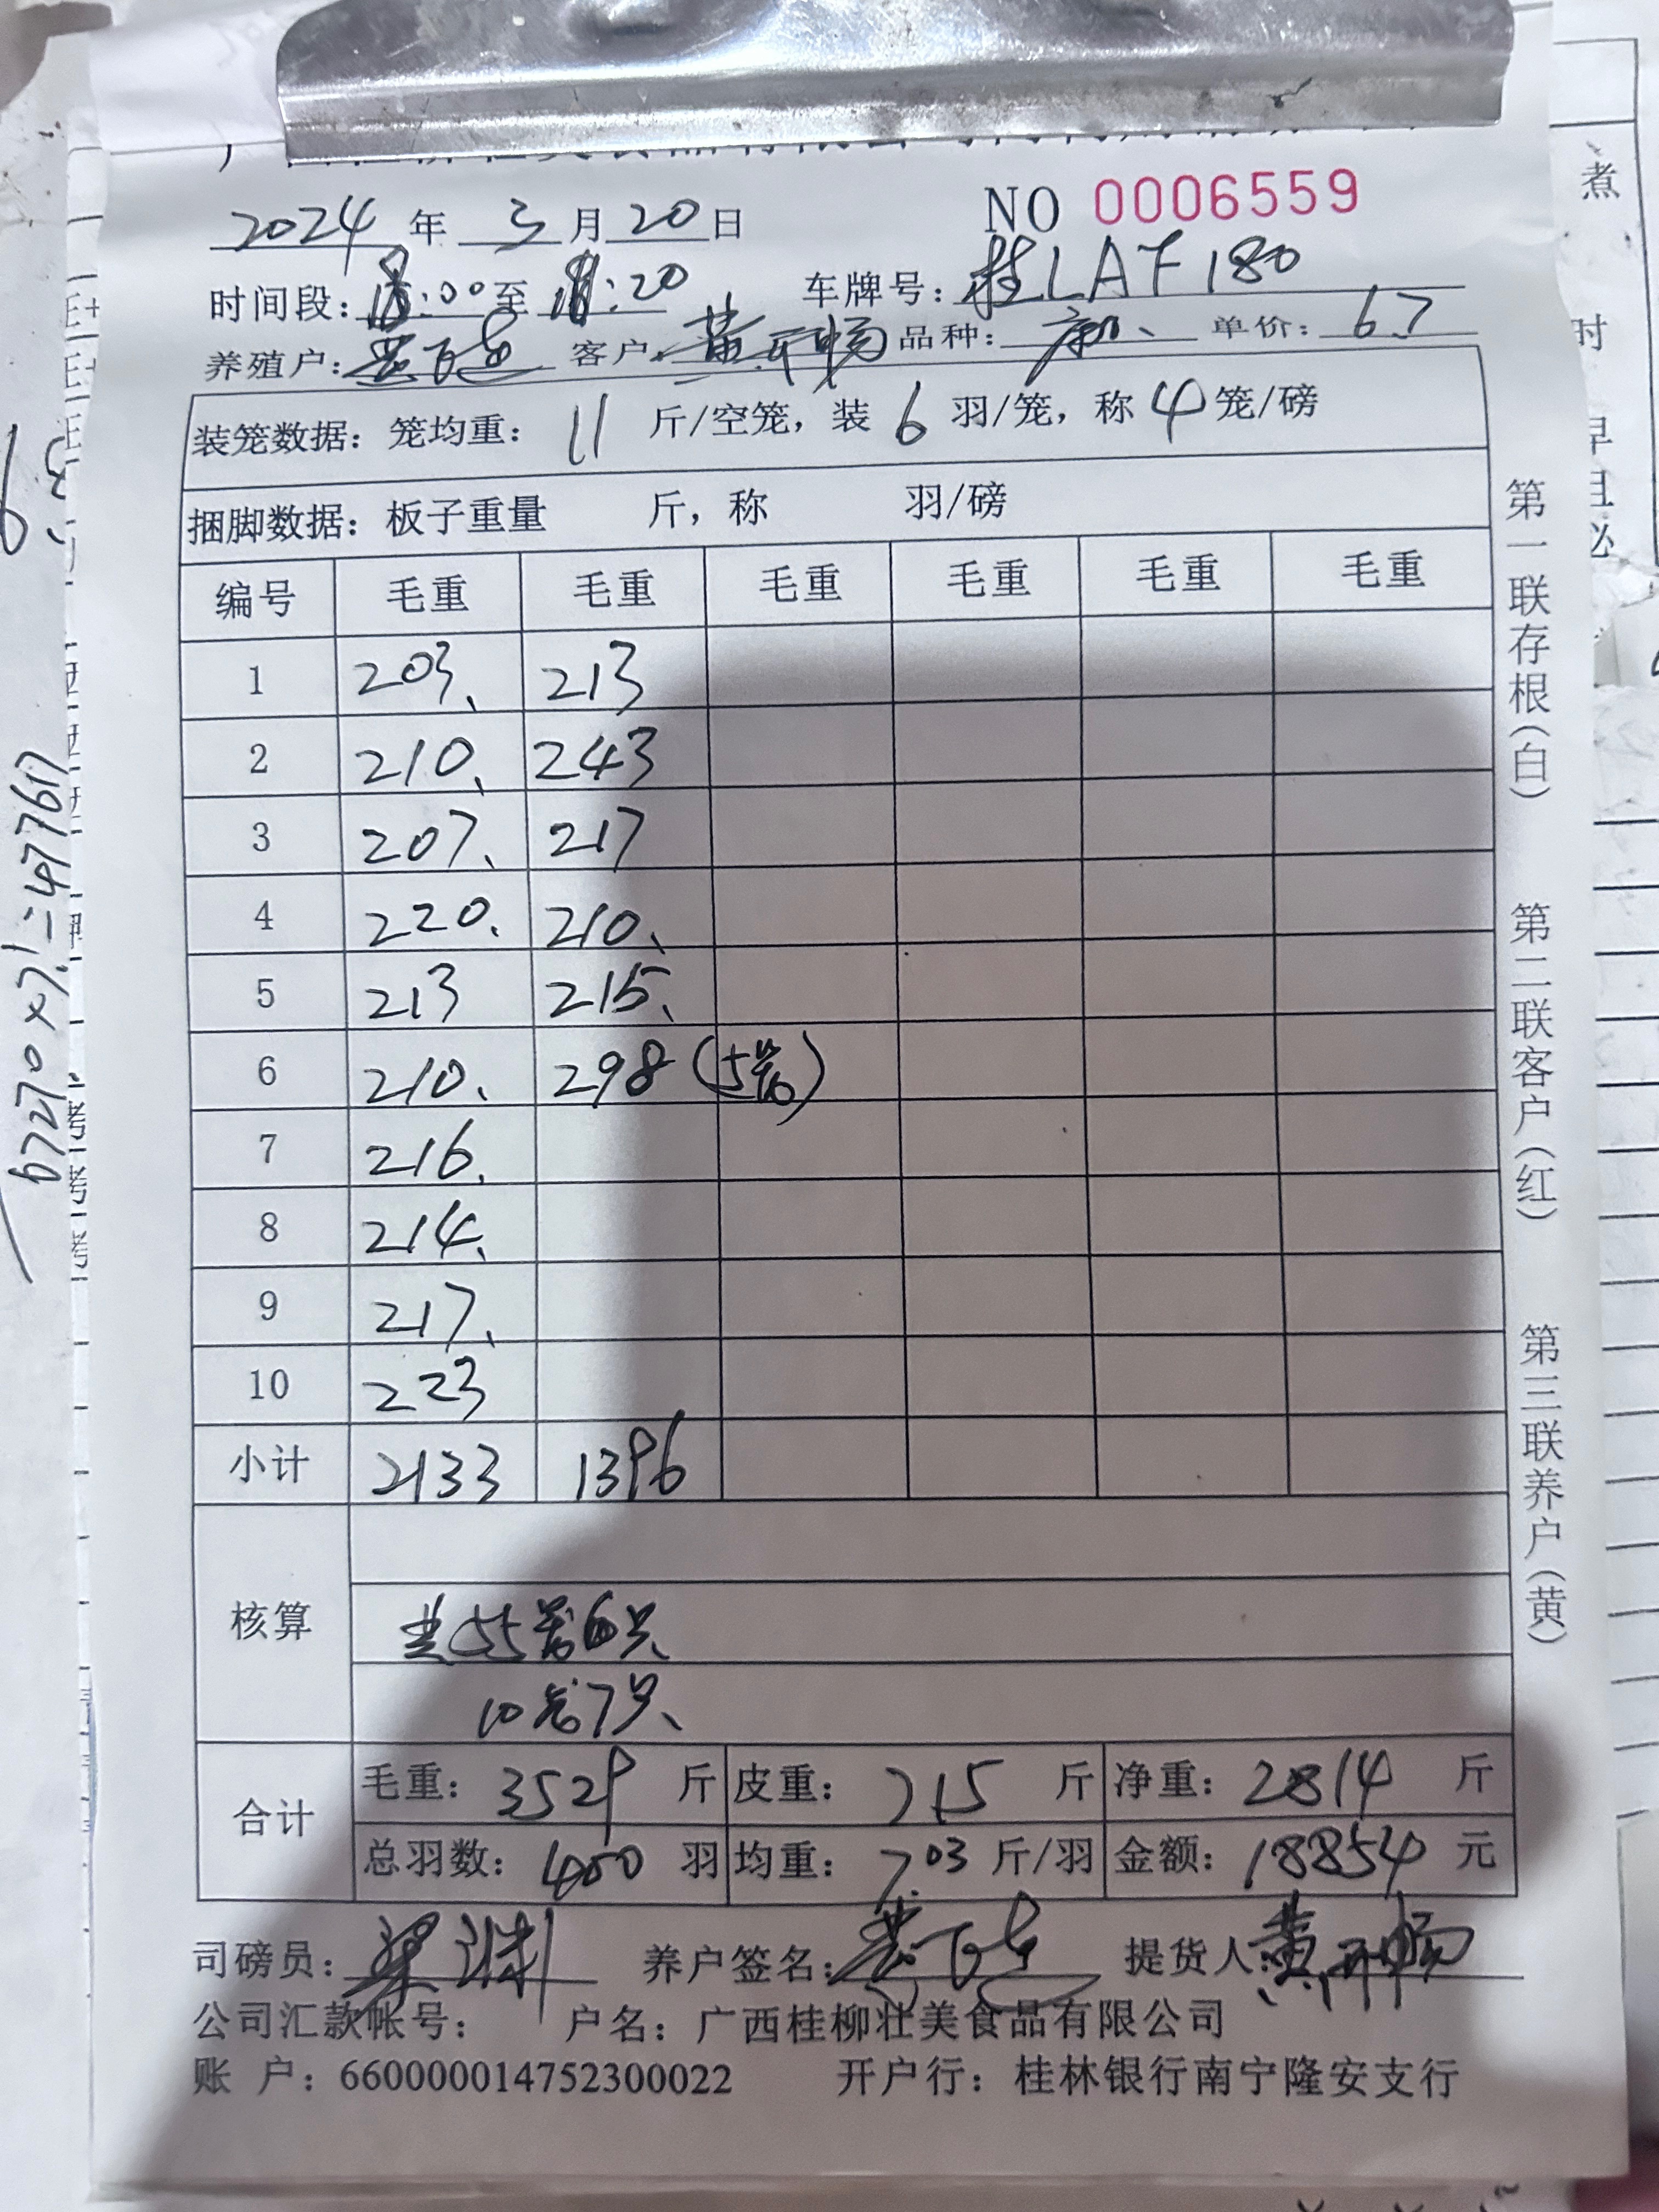 NO 0006559
2024 年 3 月 20 日
时间段: 18:00 至 :20 车牌号: 桂LAF180
养殖户: 客户: 黄开畅 品种: 单价: 6.7
装笼数据: 笼均重: 11 斤/空笼, 装 6 羽/笼, 称 4 笼/磅
捆脚数据: 板子重量 斤, 称 羽/磅
编号 毛重 毛重 毛重 毛重 毛重 毛重
1 203、 213
2 210、 243
3 207、 217
4 220、 210、
5 213 215、
6 210、 298 (5笼)
7 216、
8 214、
9 217、
10 223
小计 2133 1396
核算
共55笼6只
10笼7只、
合计 毛重: 3529 斤 皮重: 715 斤 净重: 2814 斤
总羽数: 400 羽 均重: 7.03 斤/羽 金额: 18854 元
司磅员: 梁 养户签名: 提货人: 黄开畅
公司汇款帐号: 户名: 广西桂柳壮美食品有限公司
账 户: 660000014752300022 开户行: 桂林银行南宁隆安支行
第一联存根(白) 第二联客户(红) 第三联养户(黄)
67270×7.1=477617
煮
时
早
且
必
考
考
考